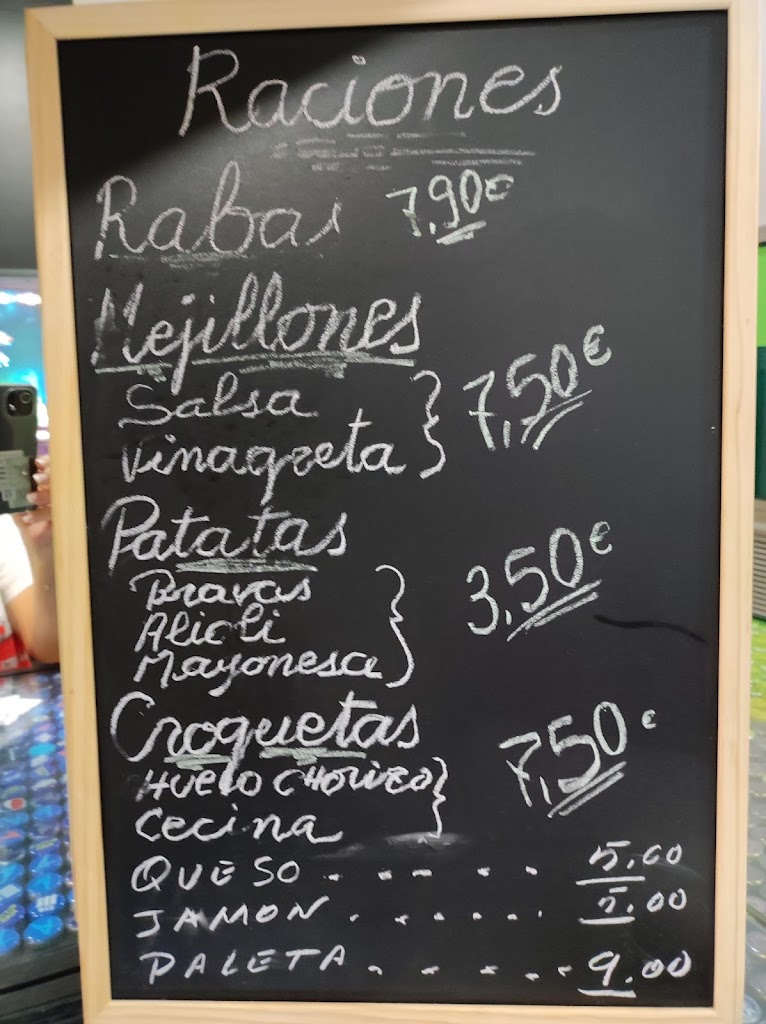 Raciones
Rabas 7,90€
Mejillones
Salsa
Vinagreta } 7,50€
Patatas
Bravas
Alioli
Mayonesa } 3,50€
Croquetas
HUEVO CHORIZO
Cecina } 7,50€
QUESO . - - . - . 5.00
JAMON . . - . - . 5.00
PALETA . . - - . 9.00